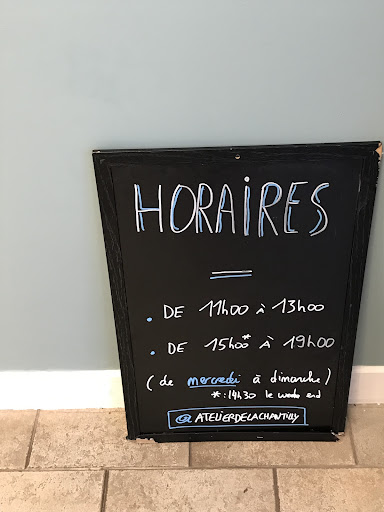 HORAIRES
. DE 11h00 à 13h00
. DE 15h00* à 19h00
(de mercredi à dimanche)
* : 14h30 le week end
@ATELIERDELACHANTILLY